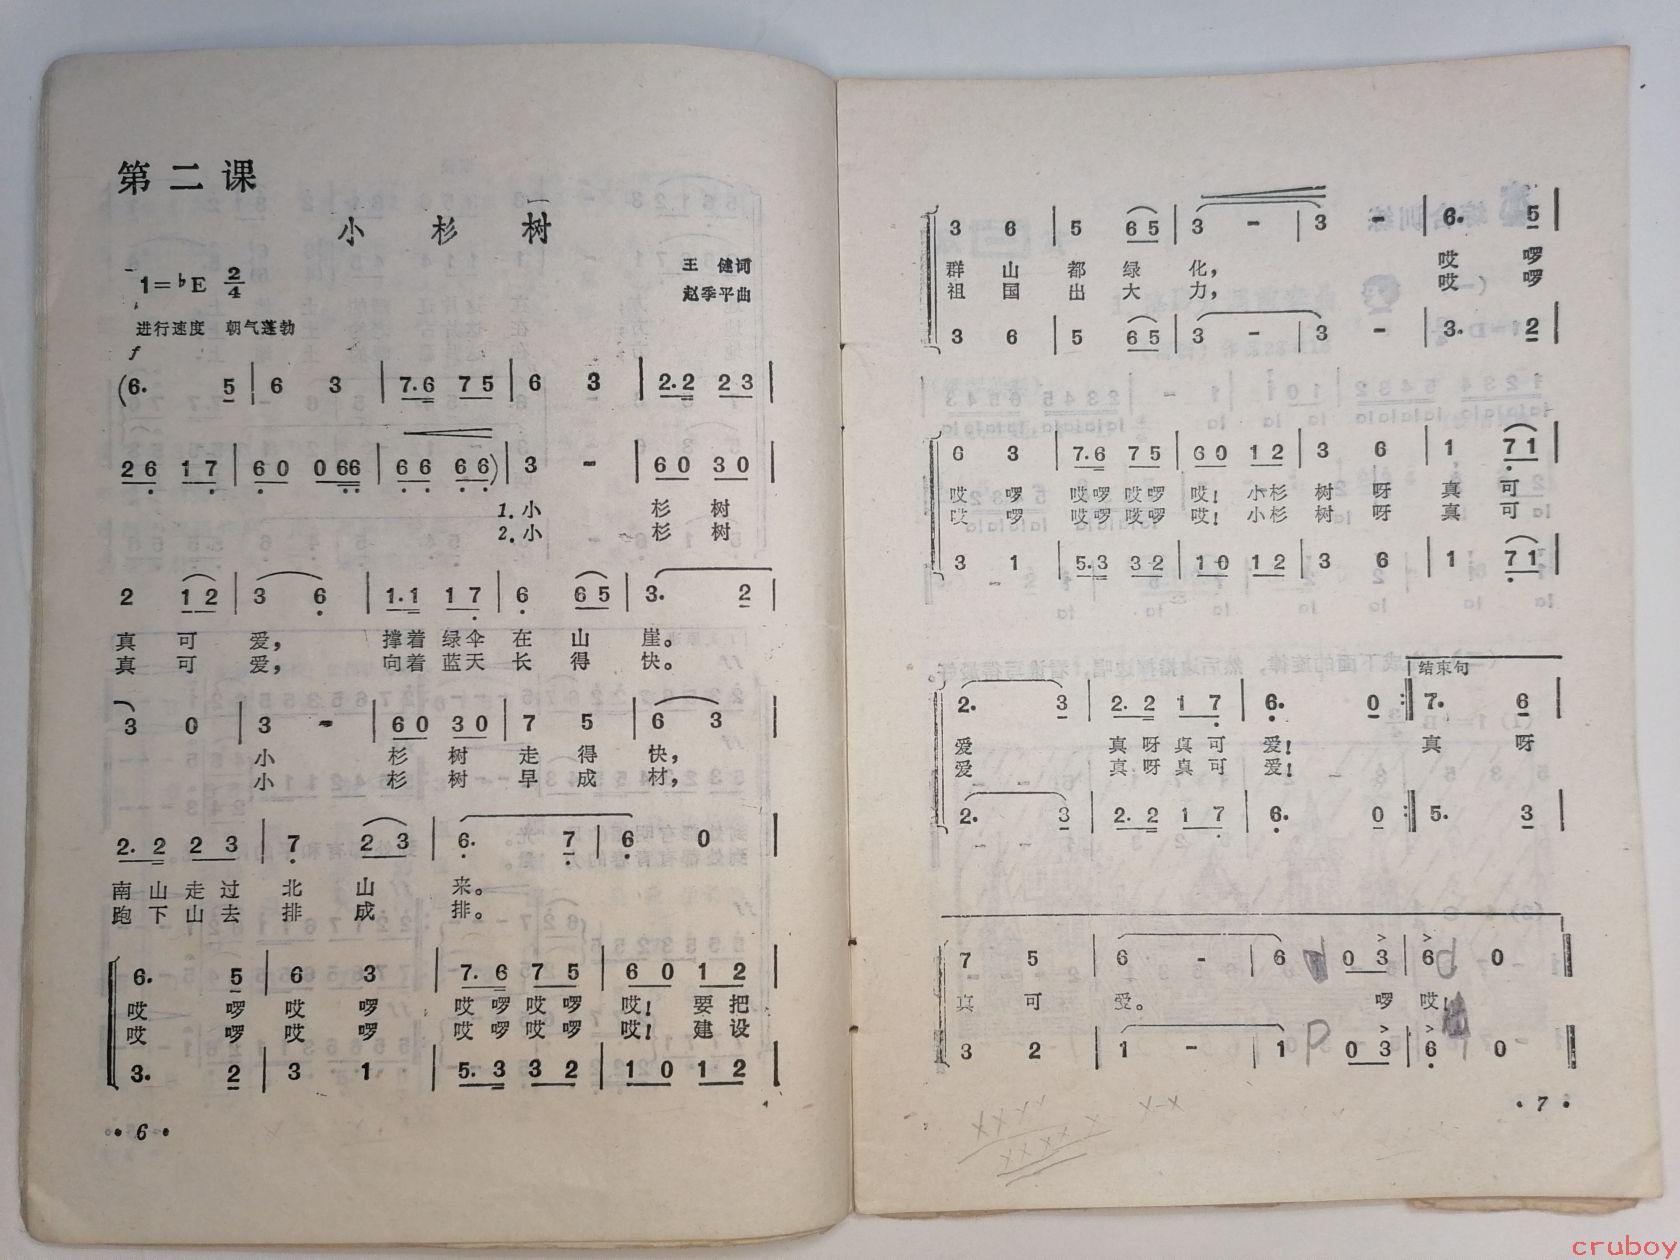 第二课
小杉树
1=♭E 2/4
王 健词
赵季平曲
进行速度 朝气蓬勃
f
(6. 5 | 6 3 | 7.6 7 5 | 6 3 | 2.2 2 3 |
2 6 1 7 | 6 0 0 6 6 | 6 6 6 6) | 3 - | 6 0 3 0 |
1.小 杉 树
2.小 杉 树
2 1 2 | 3 6 | 1.1 1 7 | 6 6 5 | 3. 2 |
真 可 爱, 撑着 绿伞 在 山 崖。
真 可 爱, 向着 蓝天 长 得 快。
3 0 | 3 - | 6 0 3 0 | 7 5 | 6 3 |
小 杉 树 走 得 快,
小 杉 树 早 成 材,
2. 2 2 3 | 7. 2 3 | 6. 7 | 6. 0 |
南 山 走 过 北 山 来。
跑 下 山 去 排 成 排。
6. 5 | 6 3 | 7. 6 7 5 | 6 0 1 2 |
哎 啰 哎 啰 哎 啰 哎 啰 哎! 要 把
哎 啰 哎 啰 哎 啰 哎 啰 哎! 建 设
3. 2 | 3 1 | 5. 3 3 2 | 1 0 1 2 |
• 6 •
3 6 | 5 6 5 | 3 - | 3 - | 6. 5 |
群 山 都 绿 化, 哎 啰
祖 国 出 大 力, 哎 啰
3 6 | 5 6 5 | 3 - | 3 - | 3. 2 |
6 3 | 7.6 7 5 | 6 0 1 2 | 3 6 | 1 7 1 |
哎 啰 哎啰 哎啰 哎! 小杉 树 呀 真 可
哎 啰 哎啰 哎啰 哎! 小杉 树 呀 真 可
3 1 | 5.3 3 2 | 1 0 1 2 | 3 6 | 1 7 1 |
结束句
2. 3 | 2. 2 1 7 | 6. 0 :| 7. 6 |
爱 真 呀 真 可 爱! 真 呀
爱 真 呀 真 可 爱!
2. 3 | 2. 2 1 7 | 6. 0 :| 5. 3 |
7 5 | 6 - | 6 0 3 | 6 0 |
真 可 爱。 啰 哎!
3 2 | 1 - | 1 0 3 | 6 0 |
• 7 •
cruboy